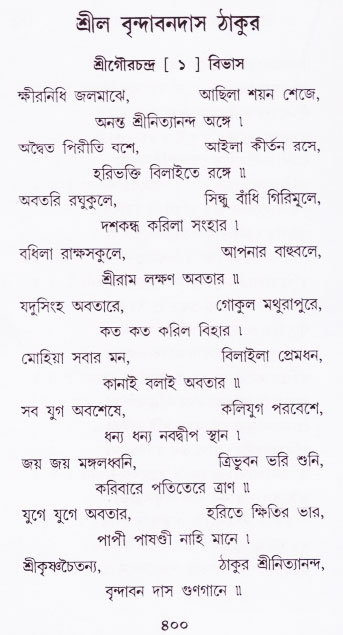 শ্রীল বৃন্দাবনদাস ঠাকুর
শ্রীগৌরচন্দ্র [ ১ ] বিভাস
ক্ষীরনিধি জলমাঝে, আছিলা শয়ন শেজে,
অনন্ত শ্রীনিত্যানন্দ অঙ্গে ।
অদ্বৈত পিরীতি বশে, আইলা কীর্তন রসে,
হরিভক্তি বিলাইতে রঙ্গে ॥
অবতরি রঘুকুলে, সিন্ধু বাঁধি গিরিমূলে,
দশকন্ধ করিলা সংহার ।
বধিলা রাক্ষসকুলে, আপনার বাহুবলে,
শ্রীরাম লক্ষণ অবতার ॥
যদুসিংহ অবতারে, গোকুল মথুরাপুরে,
কত কত করিল বিহার ।
মোহিয়া সবার মন, বিলাইলা প্রেমধন,
কানাই বলাই অবতার ॥
সব যুগ অবশেষে, কলিযুগ পরবেশে,
ধন্য ধন্য নবদ্বীপ স্থান ।
জয় জয় মঙ্গলধ্বনি, ত্রিভুবন ভরি শুনি,
করিবারে পতিতেরে ত্রাণ ॥
যুগে যুগে অবতার, হরিতে ক্ষিতির ভার,
পাপী পাষণ্ডী নাহি মানে ।
শ্রীকৃষ্ণচৈতন্য, ঠাকুর শ্রীনিত্যানন্দ,
বৃন্দাবন দাস গুণগানে ॥
৪০০